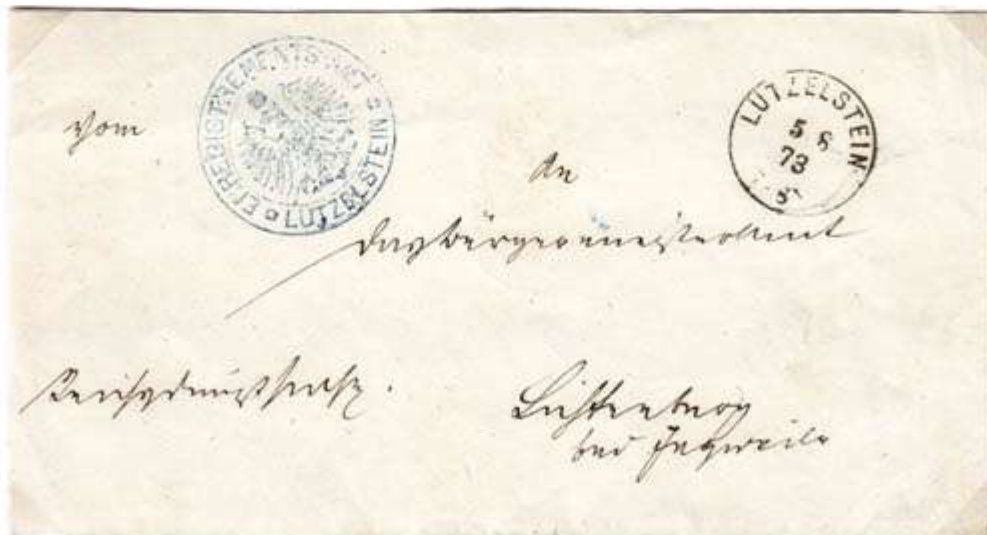 vom
EREGISTREMENTS AMT LÜTZELSTEIN
LÜTZELSTEIN
5 8
73
An
das Bürgermeisteramt
Reichsdienstsache.
Lichtenberg
bei Ingweiler